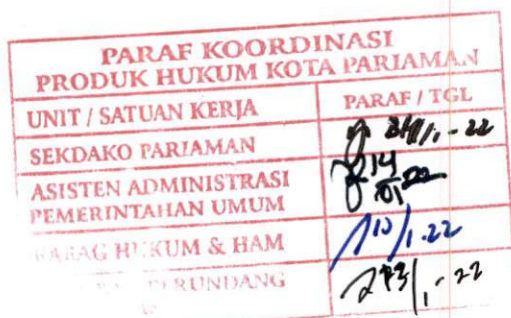 PARAF KOORDINASI
PRODUK HUKUM KOTA PARIAMAN
UNIT / SATUAN KERJA PARAF / TGL
SEKDAKO PARIAMAN
ASISTEN ADMINISTRASI
PEMERINTAHAN UMUM 14/01 22
KABAG HUKUM & HAM 10/1.22
PERUNDANG /1-22